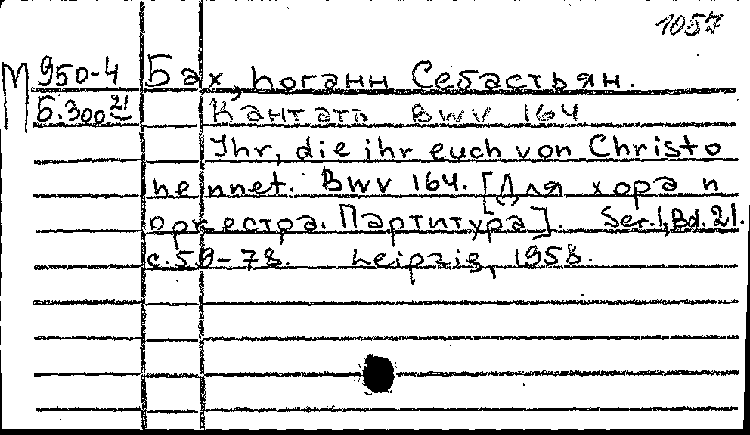 1057
М 950-4 Бах, Иоганн Себастьян.
Б.300 21 Кантата BWV 164
Ihr, die ihr euch von Christo
nennet. BWV 164. [Для хора и
оркестра. Партитура]. Ser.1, Bd.21.
с.59-78. Leipzig, 1958.